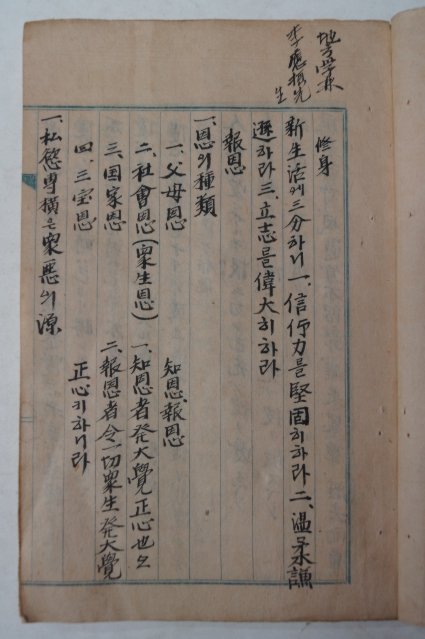 地方学林
李應根先生
修身
新生活에三分하니 一、信仰力를堅固히하라 二、温柔謙
遜하라 三、立志를偉大히하라
報恩
一、恩의種類
一、父母恩 知恩、報恩
二、社會恩(衆生恩) 一、知恩者発大覺正心也오
三、国家恩 二、報恩者令一切衆生発大覺
四、三宝恩 正心키하니라
一、私慾専横은衆悪의源